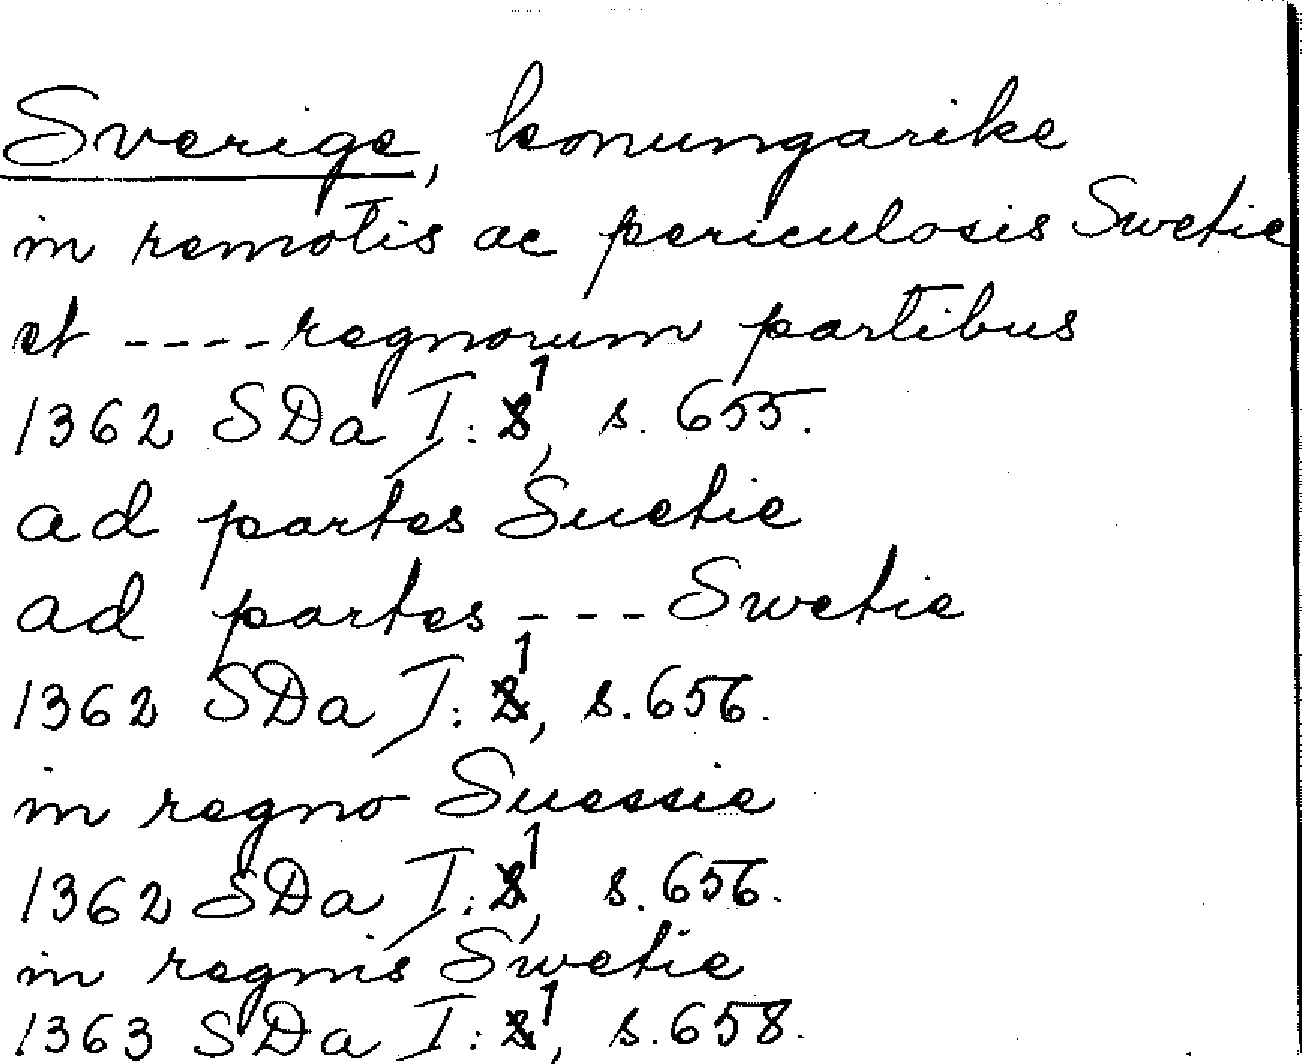 Sverige, konungarike
in remotis ac periculosis Swetie
et ---- regnorum partibus
1362 SDa I:1, s. 655.
ad partes Suetie
ad partes --- Swetie
1362 SDa I:1, s. 656.
in regno Suessie
1362 SDa I:1, s. 656.
in regnis Swetie
1363 SDa I:1, s. 658.